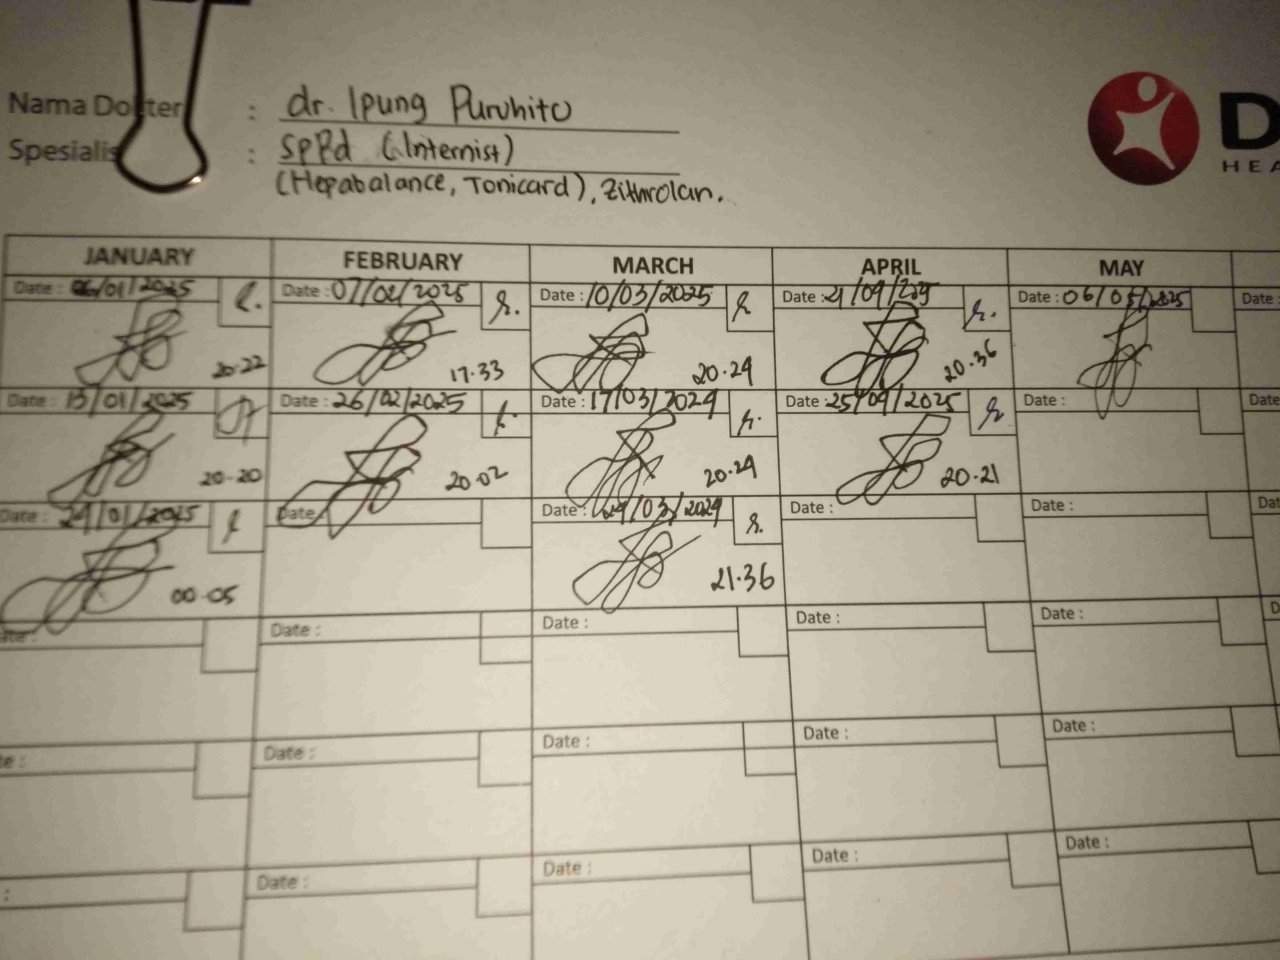 Nama Dokter : dr. Ipung Puruhito
Spesialis : SpPd (Internist)
(Hepabalance, Tonicard), Zithrolan.
D
HEA
JANUARY FEBRUARY MARCH APRIL MAY
Date : 06/01/2025 Date : 07/02/2025 Date : 10/03/2025 Date : 21/04/225 Date : 06/05/2025 Date :
20.22 17.33 20.24 20.36
Date : 13/01/2025 Date : 26/02/2025 Date : 17/03/2024 Date : 25/04/2025 Date : Date
20.20 20.02 20.24 20.21
Date : 24/01/2025 Date Date : 24/03/2024 Date : Date : Dat
00.05 21.36
Date : Date : Date : Date : Date : D
te : Date : Date : Date : Date :
: Date : Date : Date : Date :